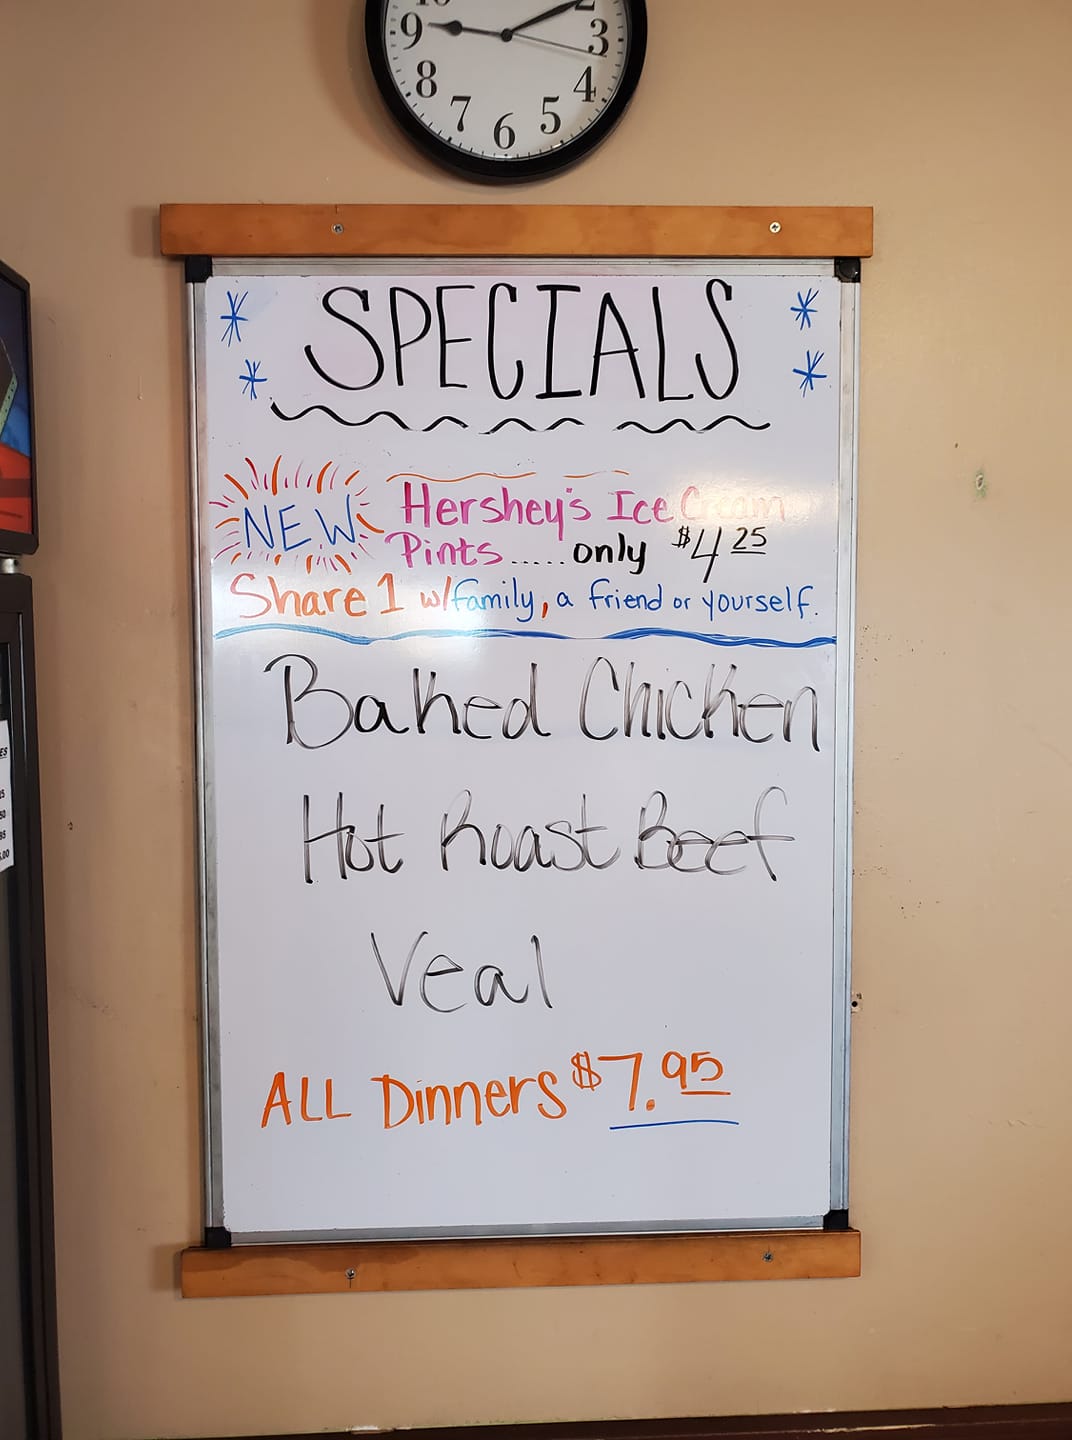 10
2
9
3
8
4
7
5
6
SPECIALS
NEW
Hershey's Ice Cream
Pints.....only $4 25
Share 1 w/family, a friend or yourself.
Baked Chicken
Hot Roast Beef
Veal
ALL Dinners $7.95
ES